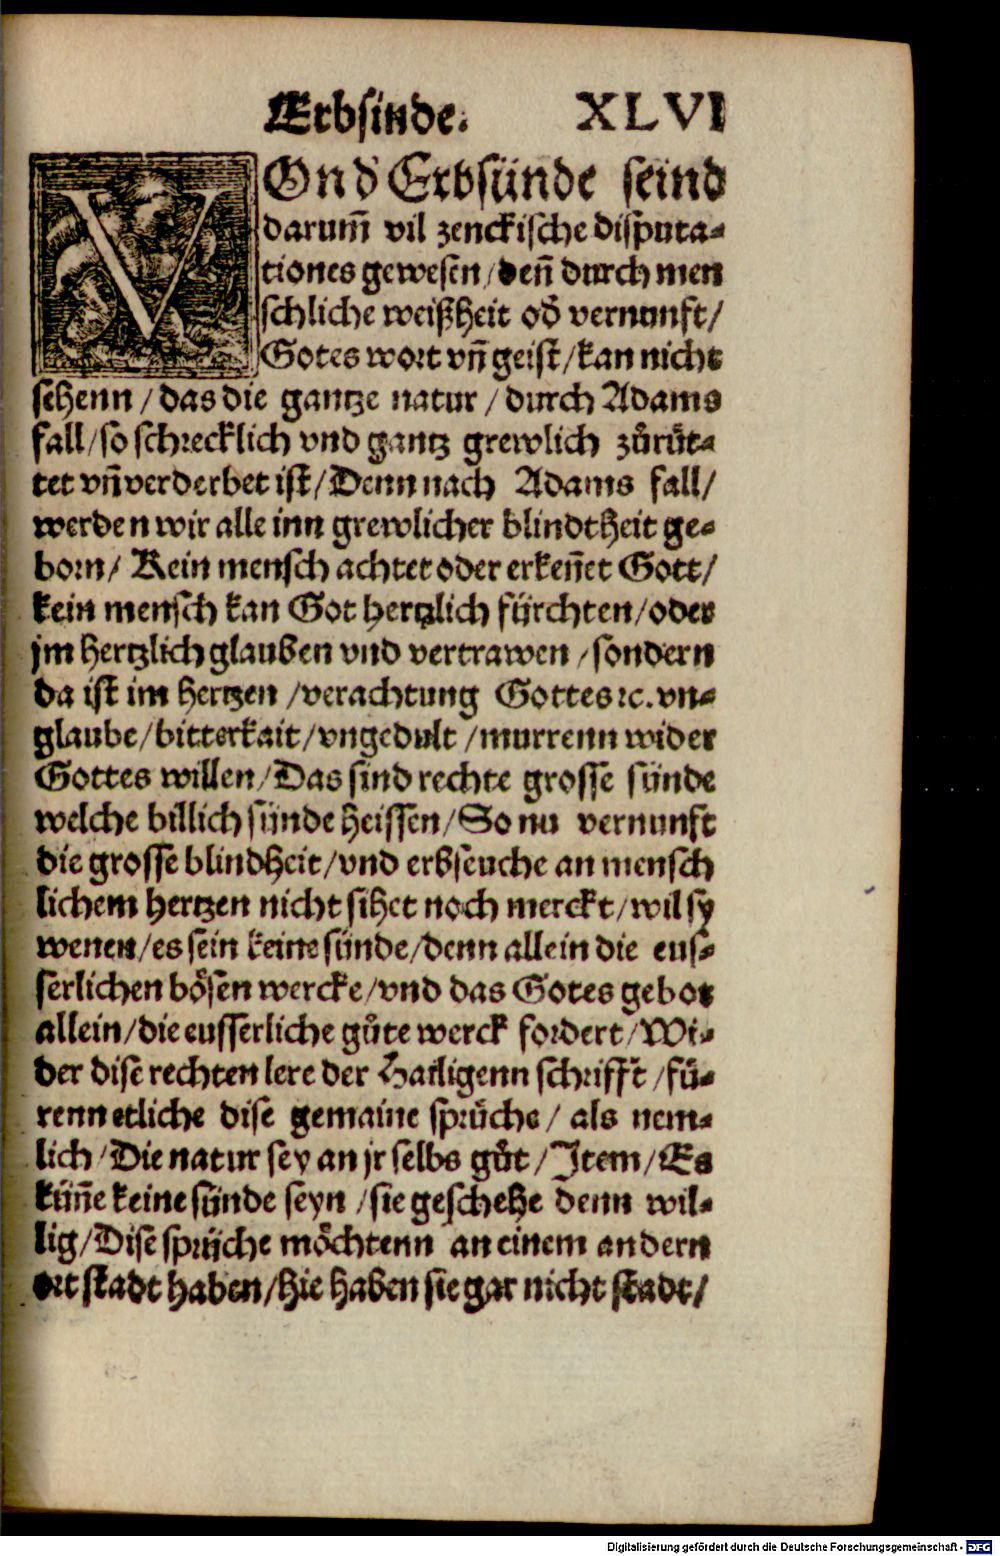 Erbsinde. XLVI
VOn d' Erbsünde seind
darum̃ vil zenckische disputa⸗
tiones gewesen/den̄ durch men
schliche weißheit od' vernunft/
Gotes wort vn̄ geist/kan nicht
sehenn/das die gantze natur/durch Adams
fall/so schrecklich vnd gantz grewlich zůrüt⸗
tet vn̄ verderbet ist/Denn nach Adams fall/
werden wir alle inn grewlicher blindtheit ge⸗
born/Kein mensch achtet oder erken̄et Gott/
kein mensch kan Got hertzlich fürchten/oder
jm hertzlich glauben vnd vertrawen/sondern
da ist im hertzen/verachtung Gottes ꝛc. vn⸗
glaube/bitterkait/vngedult/murrenn wider
Gottes willen/Das sind rechte grosse sünde
welche billich sünde heissen/So nu vernunft
die grosse blindheit/vnd erbseuche an mensch
lichem hertzen nicht sihet noch merckt/wil sy
wenen/es sein keine sünde/denn allein die eus⸗
serlichen bösen wercke/vnd das Gotes gebot
allein/die eusserliche gůte werck fordert/Wi⸗
der dise rechten lere der Hailigenn schrifft/fü⸗
renn etliche dise gemaine sprüche/als nem⸗
lich/Die natur sey an jr selbs gůt/Item/Es
kün̄e keine sünde seyn/sie geschehe denn wil⸗
lig/Dise sprüche möchtenn an einem andern
ort stadt haben/hie haben sie gar nicht stadt/
Digitalisierung gefördert durch die Deutsche Forschungsgemeinschaft - DFG